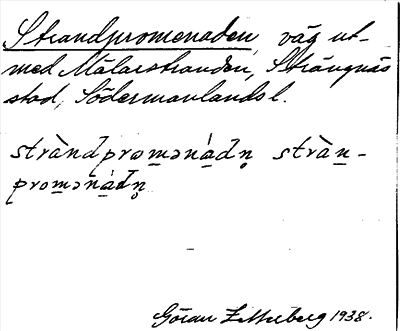 Strandpromenaden, väg ut-
med Mälarstranden, Strängnäs
stad, Södermanlands l.
stràndprọm̲əná̲dn̥ stràn̲-
prom̲əná̲dn̥
Göran Zetterberg 1938.